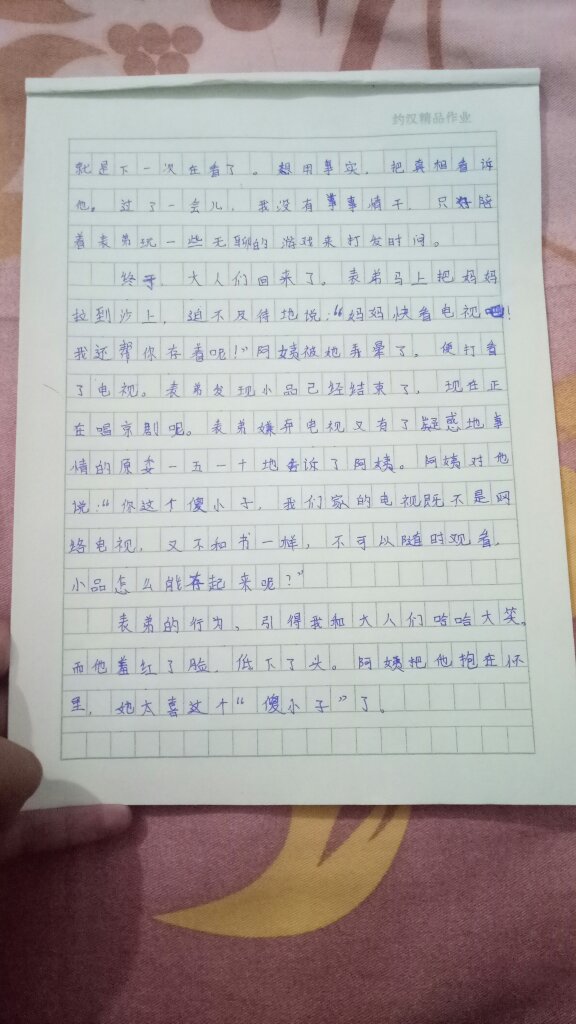 约汉精品作业
就是下一次在看了。想用事实，把真相看诉
他。过了一会儿，我没有事情干，只好陪
着表弟玩一些无聊的游戏来打发时间。
终于，大人们回来了。表弟马上把妈妈
拉到沙上，迫不及待地说：“妈妈快看电视吧！
我还帮你存着呢！”阿姨被她弄晕了，便打着
了电视。表弟发现小品已经结束了，现在正
在唱京剧呢。表弟嫌弃电视又有了疑惑地事
情的原委一五一十地告诉了阿姨。阿姨对他
说：“你这个傻小子，我们家的电视既不是网
络电视，又不和书一样，不可以随时观看，
小品怎么能存起来呢？”
表弟的行为，引得我和大人们哈哈大笑。
而他羞红了脸，低下了头。阿姨把他抱在怀
里，她太喜这个“傻小子”了。